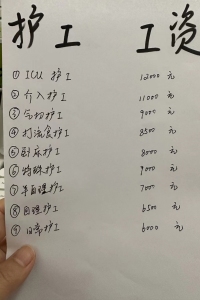 护工 工资
① ICU 护工 12000 元
② 介入护工 11000 元
③ 气切护工 9000 元
④ 打流食护工 8500 元
⑤ 卧床护工 8000 元
⑥ 特殊护工 9000 元
⑦ 半自理护工 7000 元
⑧ 自理护工 6500 元
⑨ 日常护工 6000 元